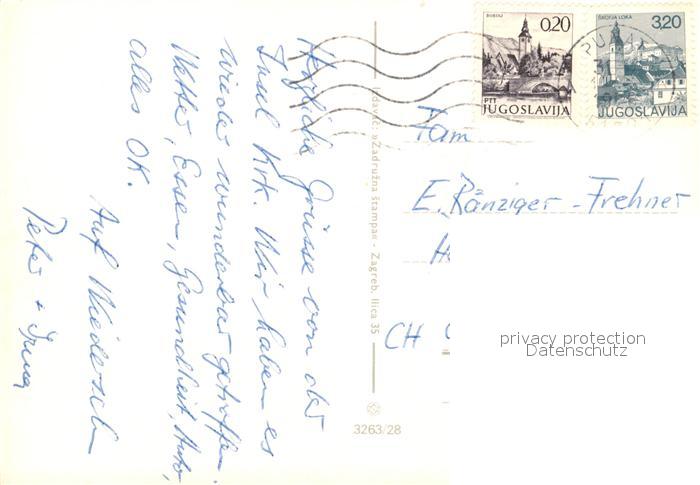 Herzliche Grüsse von der
Insel Krk. Wir haben es
wieder wunderbar getroffen.
Wetter, Essen, Gesundheit, Auto,
alles OK.
Auf Wiedersehn
Peter + Irma
Izdavač: »Zadružna štampa« - Zagreb, Ilica 35
3263/28
BOHINJ
0,20
PTT
JUGOSLAVIJA
ŠKOFJA LOKA
3,20
JUGOSLAVIJA
Fam
E. Ränziger - Frehner
CH
privacy protection
Datenschutz